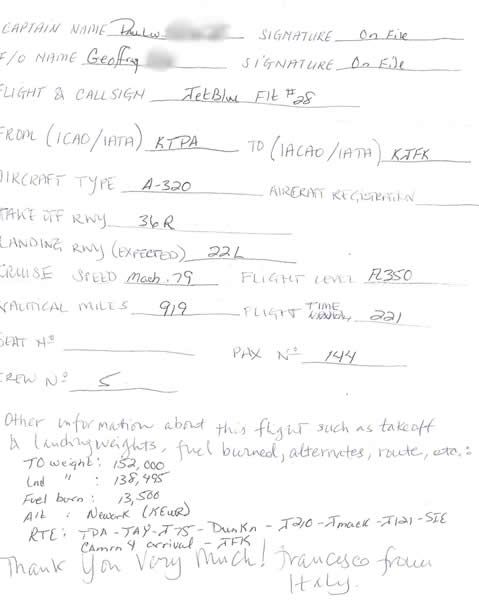 CAPTAIN NAME Paulo SIGNATURE On File
F/O NAME Geoffray SIGNATURE On File
FLIGHT & CALLSIGN JetBlue Flt #28
FROM (ICAO/IATA) KTPA TO (IACAO/IATA) KJFK
AIRCRAFT TYPE A-320 AIRCRAFT REGISTRATION
TAKE OFF RWY 36R
LANDING RWY (EXPECTED) 22L
CRUISE SPEED Mach .79 FLIGHT LEVEL FL350
NAUTICAL MILES 919 FLIGHT TIME 221
SEAT Nº
PAX Nº 144
CREW Nº 5
Other information about this flight such as takeoff
& landing weights, fuel burned, alternates, route, etc.:
TO weight: 152,000
Lnd " : 138,495
Fuel burn: 13,500
Alt: Newark (KEWR)
RTE: TPA - TAY - J75 - Dunkn - J210 - Jmack - J121 - SIE
Camrn 4 arrival - JFK
Thank You Very Much! Francesco from
Italy.